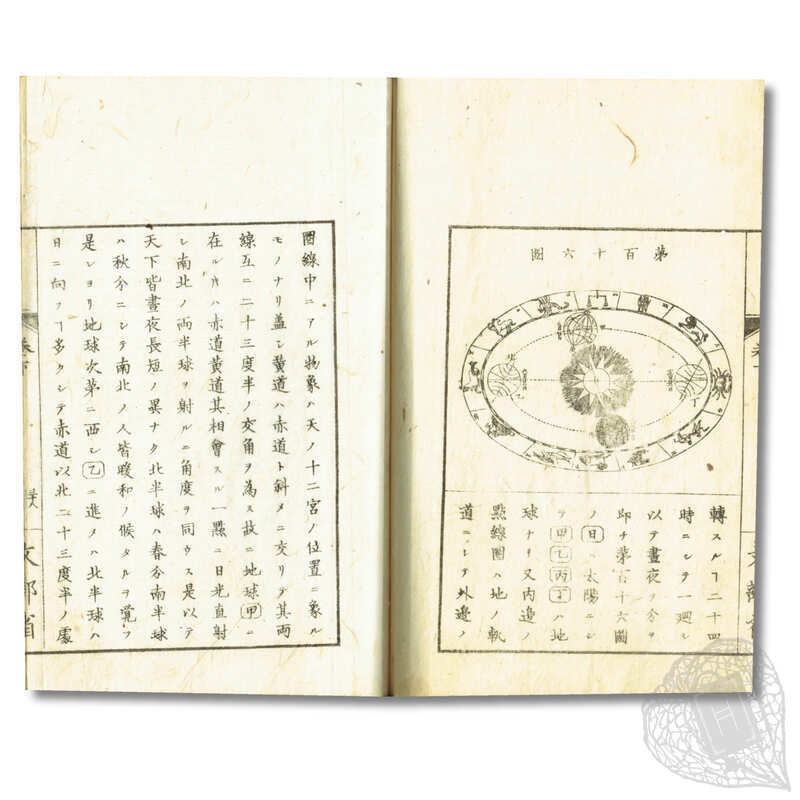 第百十六圖
轉スルヿ二十四
時ニシテ一廻シ
以テ晝夜ヲ分ヲ
即チ第百十六圖
ノ日ハ太陽ニシ
テ甲乙丙丁ハ地
球ナリ又内邊ノ
點線圏ハ地ノ軌
道ニシテ外邊ノ
圏線中ニアル物象ハ天ノ十二宮ノ位置ニ象ル
モノナリ蓋シ黄道ハ赤道ト斜メニ交リテ其兩
線互ニ二十三度半ノ交角ヲ為ス故ニ地球甲ニ
在ル片ハ赤道黄道其相會スル一點ニ日光直射
シ南北ノ両半球ヲ射ルニ角度ヲ同ウス是以テ
天下皆晝夜長短ノ異ナク北半球ハ春分南半球
ハ秋分ニシテ南北ノ人皆暖和ノ候タルヲ覺フ
是レヨリ地球次第ニ西シ乙ニ進メハ北半球ハ
日ニ向フヿ多クシテ赤道以北二十三度半ノ處
文部省